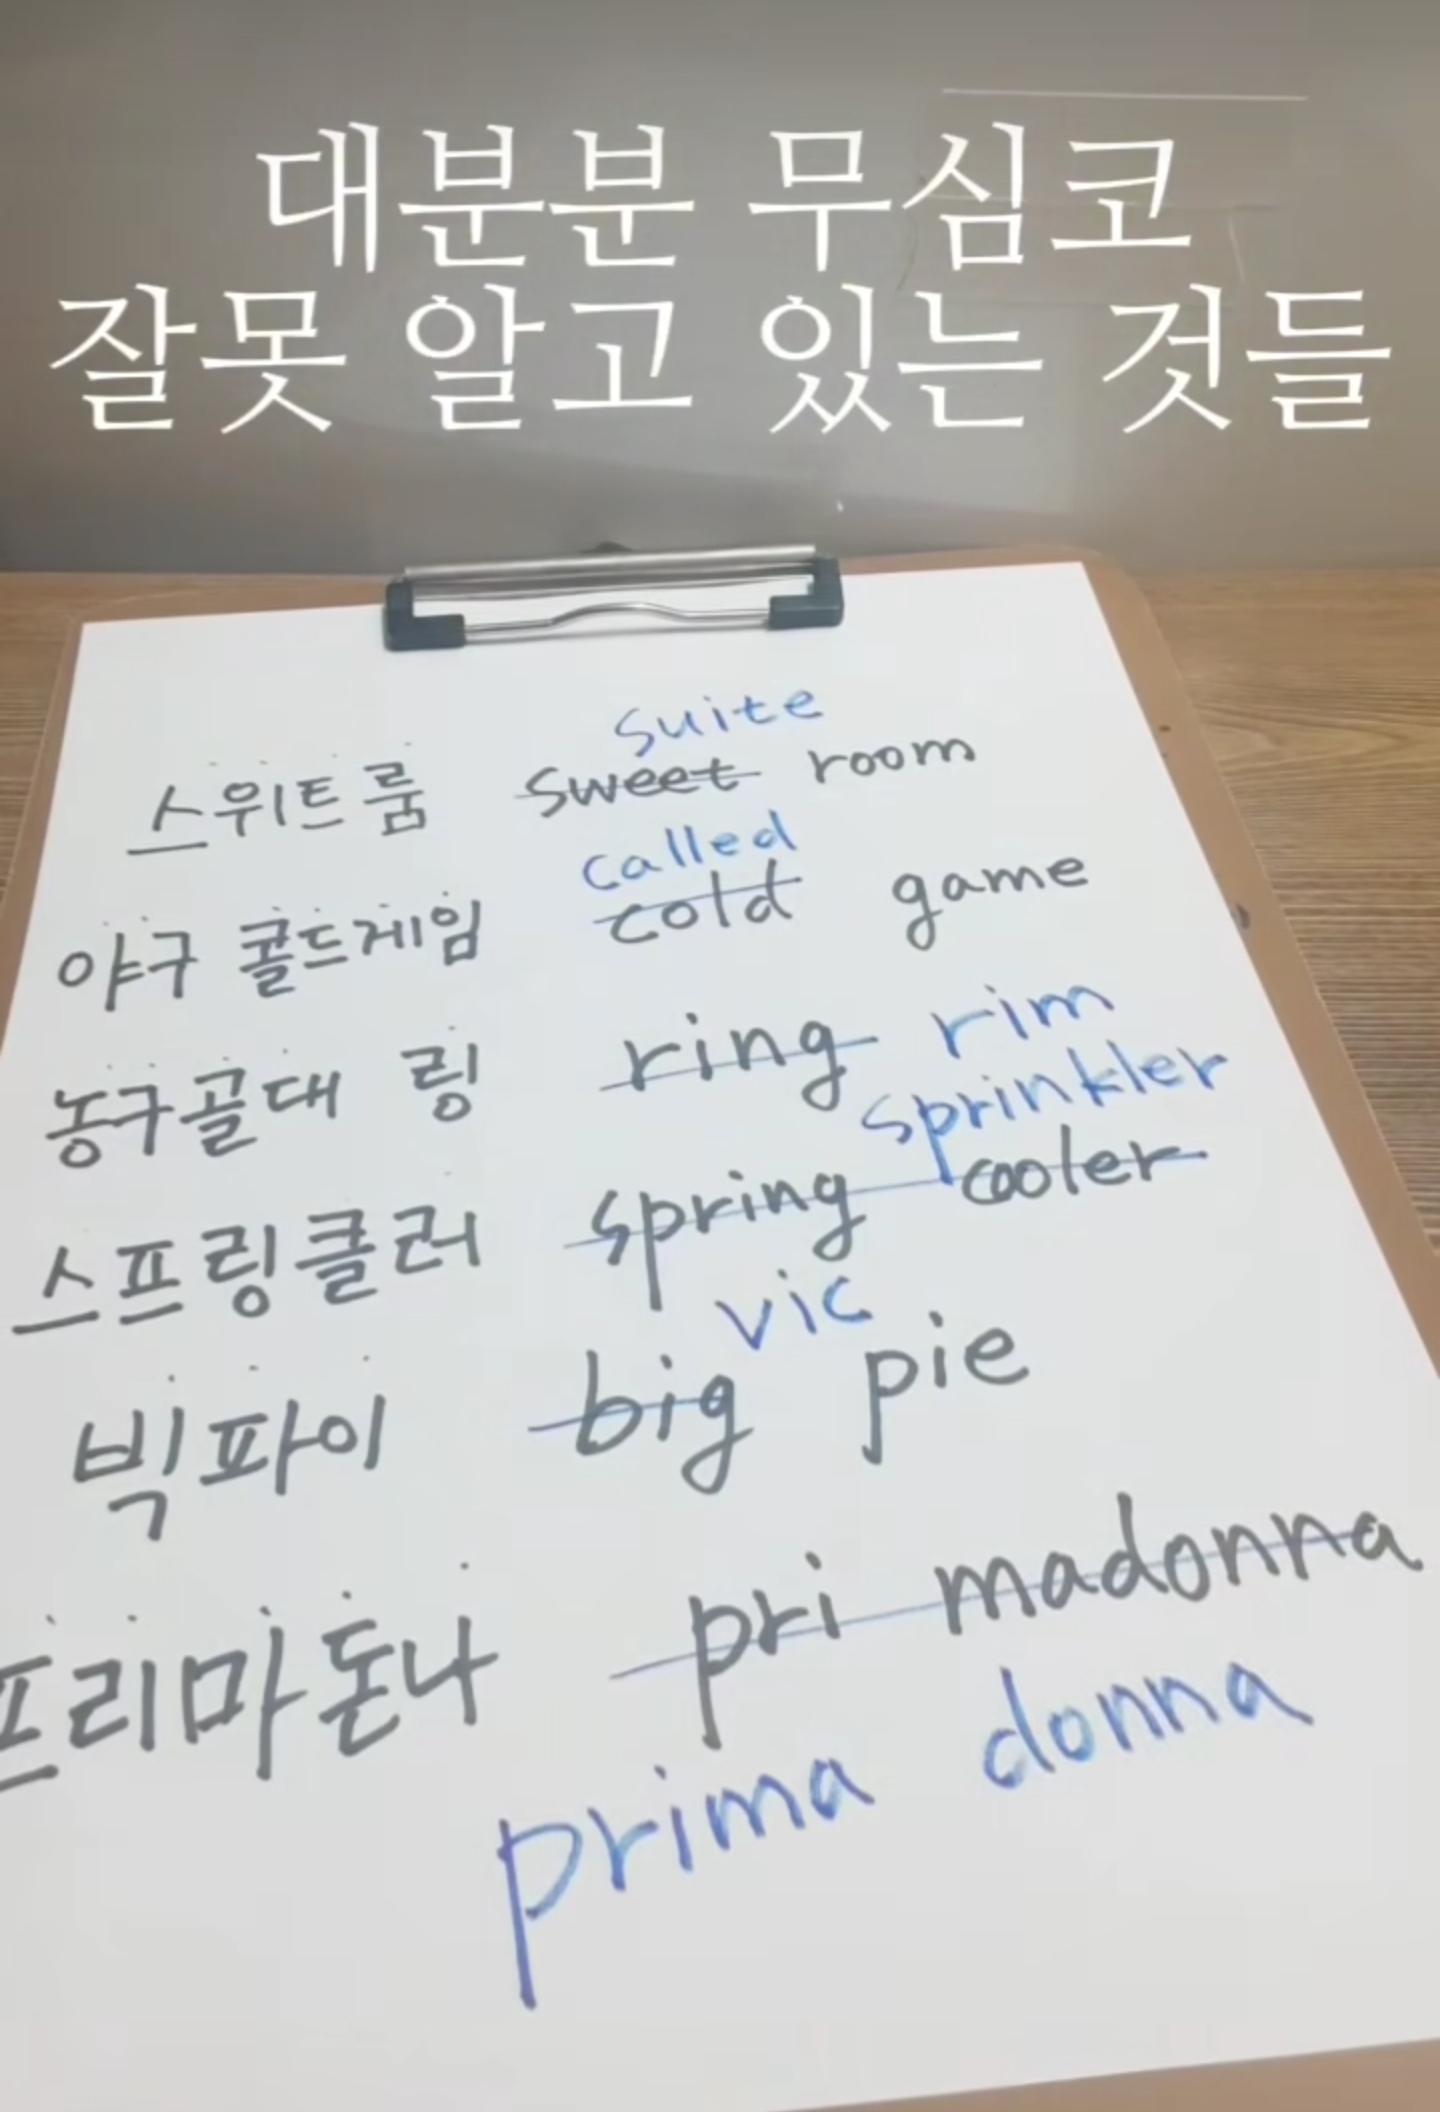 대분분 무심코
잘못 알고 있는 것들
suite
스위트룸 sweet room
called
야구 콜드게임 cold game
농구골대 링 ring rim
sprinkler
스프링클러 spring cooler
vic
빅파이 big pie
프리마돈나 pri madonna
prima donna